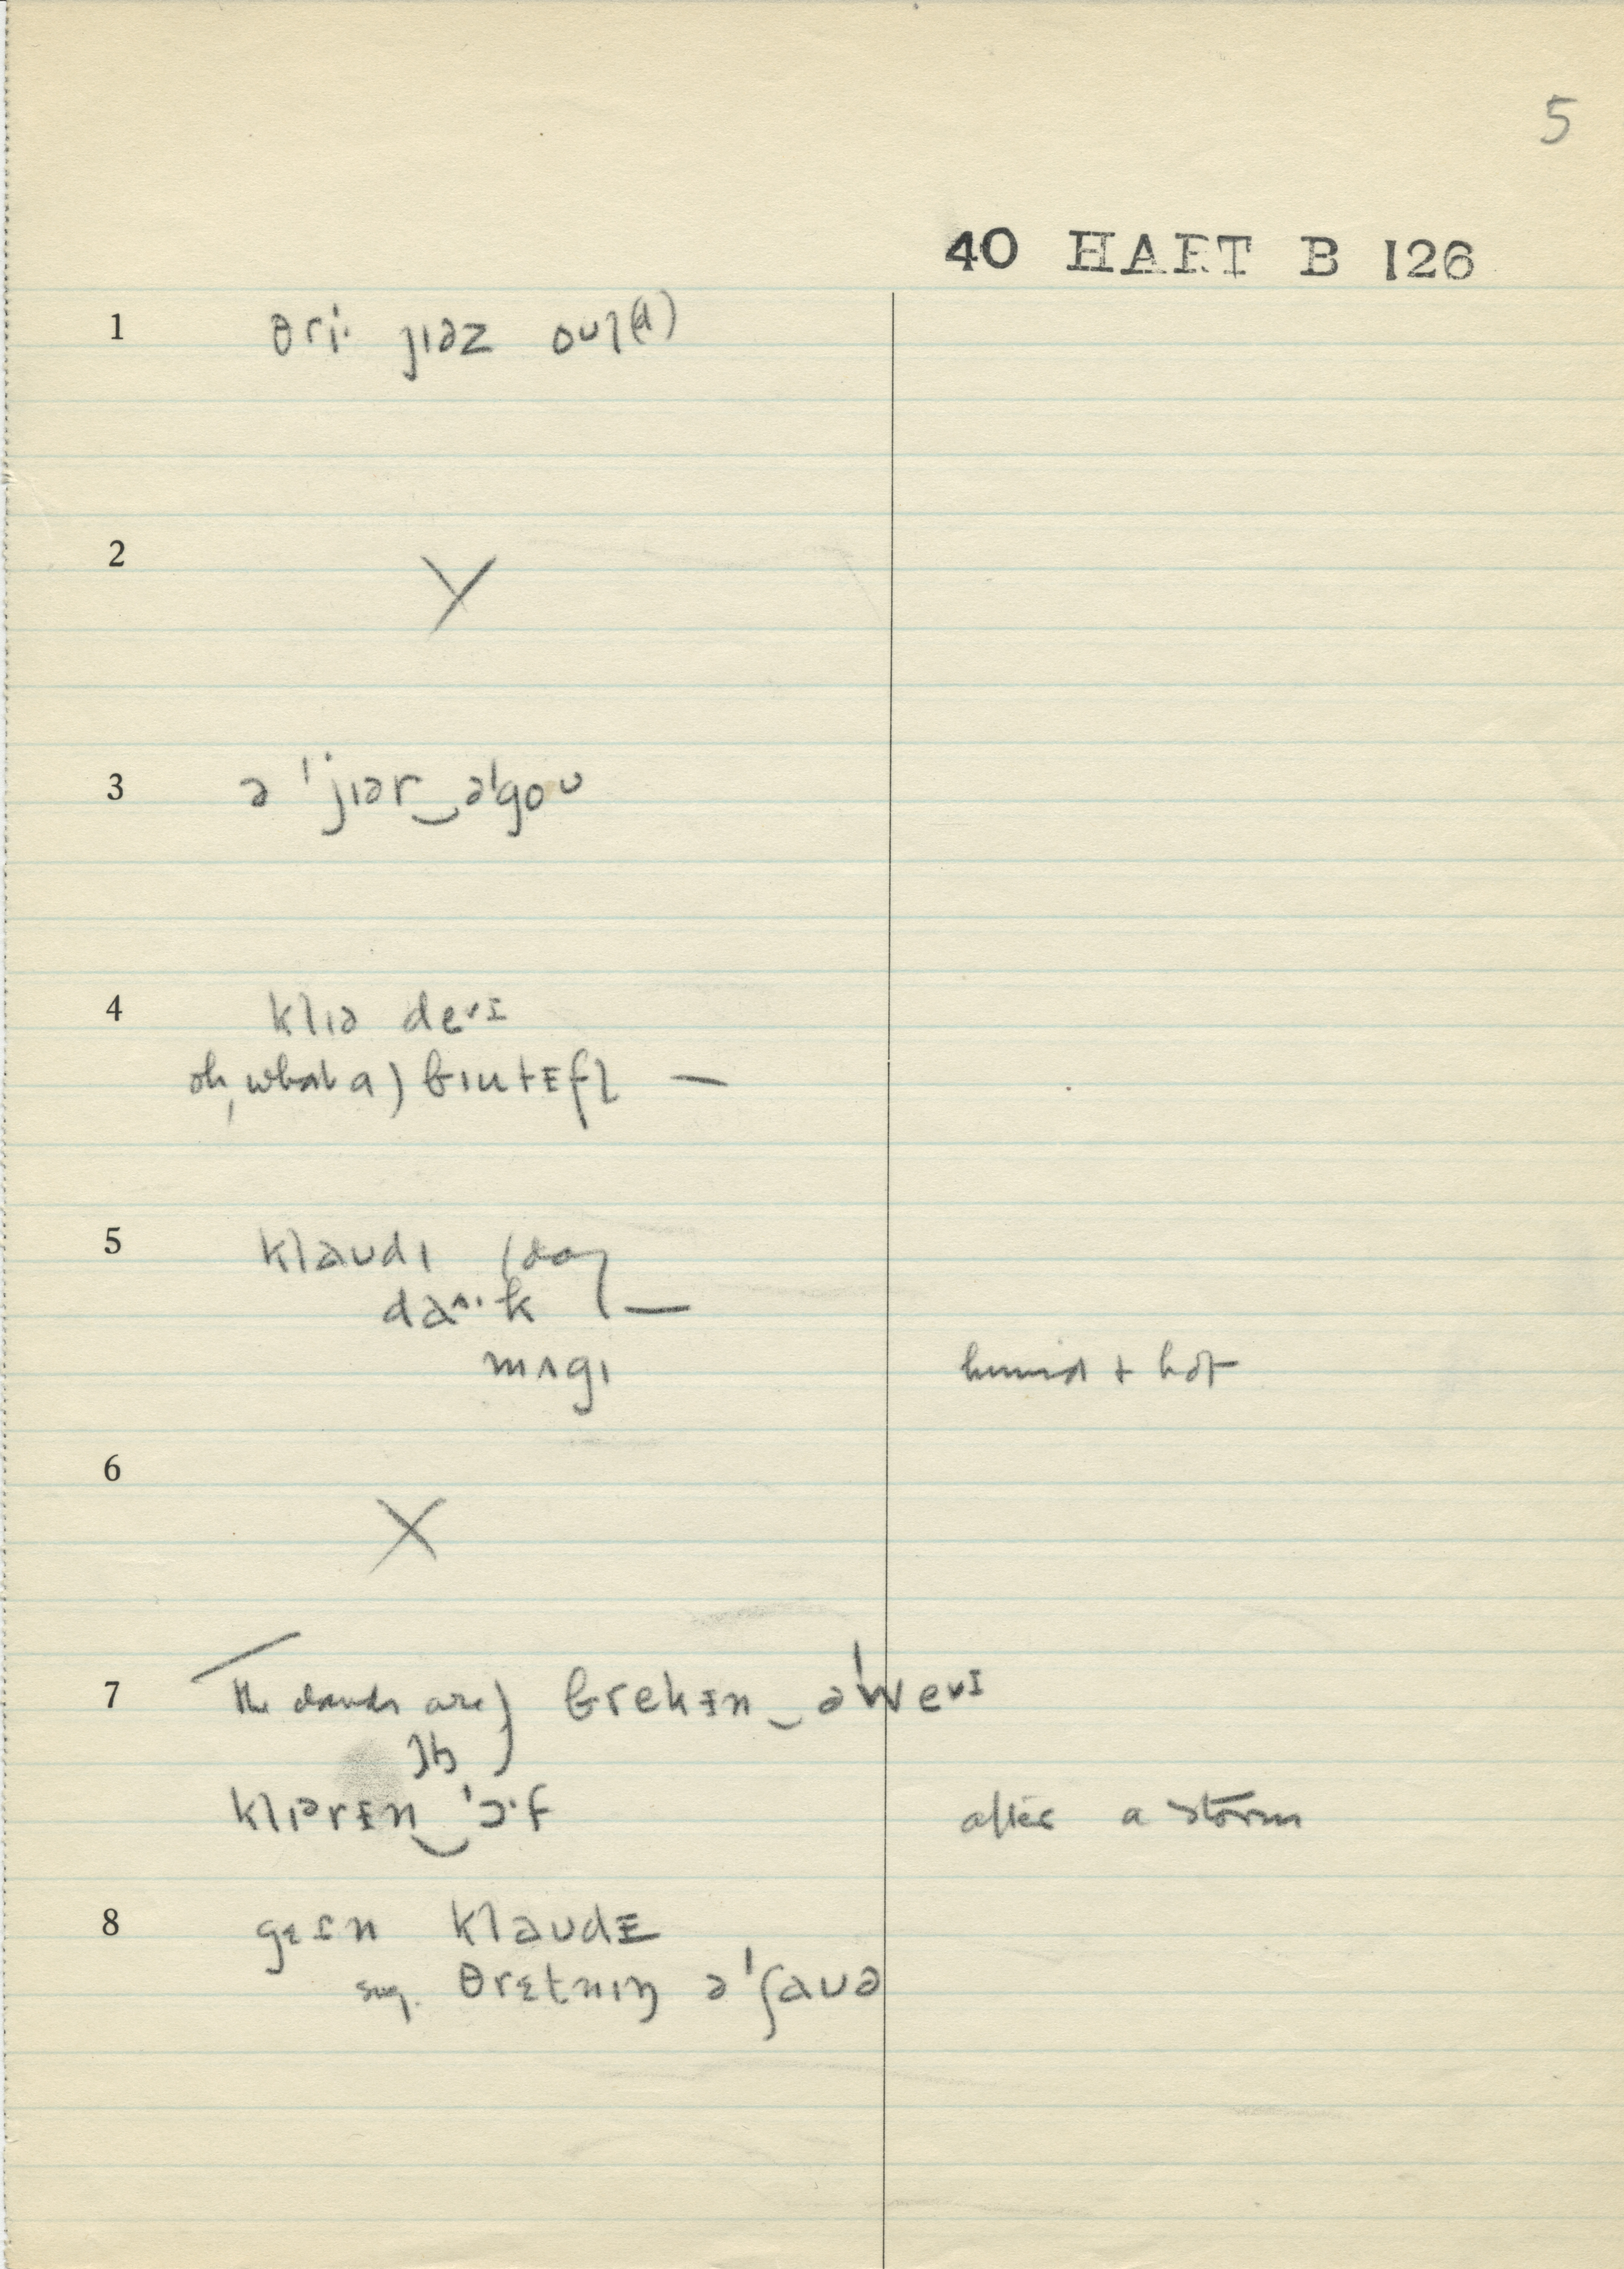 5
40 HART B 126
1 θri· jɪəz oʊl(d)
2
3 ə ˈjɪər‿əˈgoʊ
4 klɪə deᵛɪ
oh, what a) bɪutᵻfl —
5 klaʊdɪ (day
daᶺ·k —
mʌgɪ humid + hot
6 X
7 the clouds are) brekᵻn‿əˈweᵛɪ
klɪərᵻn‿ˈɔ·f after a storm
8 klaʊdᵻ
sug. θrɛtnɪŋ əˈʃaʊə